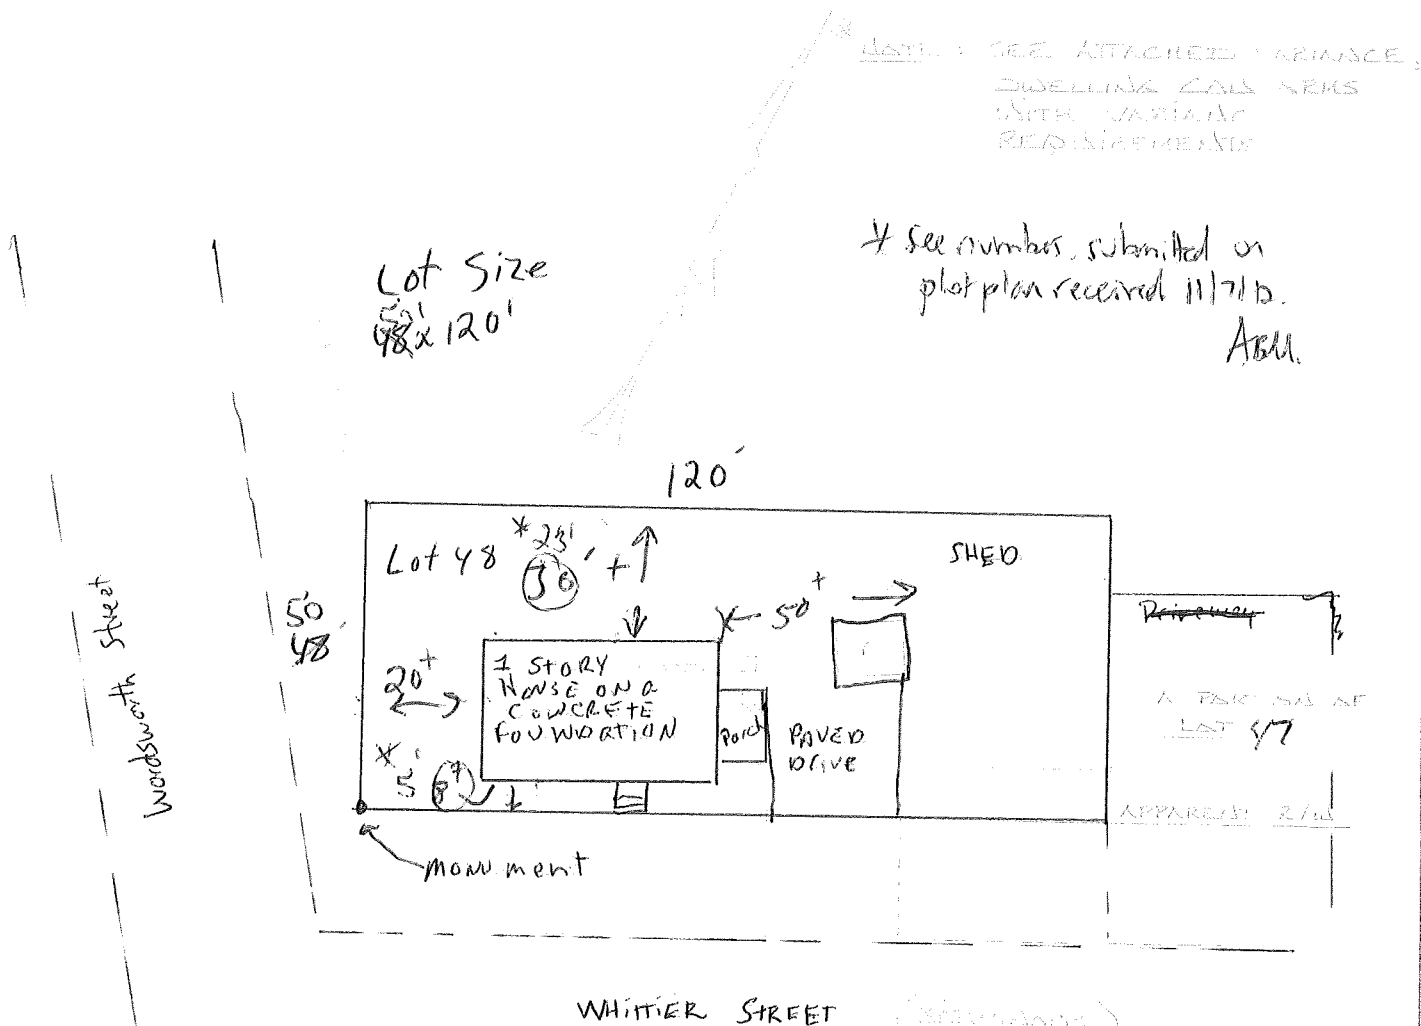 NOTE: SEE ATTACHED VARIANCE,
DWELLING
WITH
REQUIREMENTS
* See numbers, submitted on
plot plan received 11/7/12.
Lot Size
50'
48 x 120'
120'
Lot 48
* 23'
30' +
SHED
50+
50'
48'
20+
1 STORY
HOUSE ON A
CONCRETE
FOUNDATION
Porch
PAVED
Drive
* 5'
8+
Driveway
LOT 47
APPARENT R/W
monument
Wordsworth Street
WHITTIER STREET